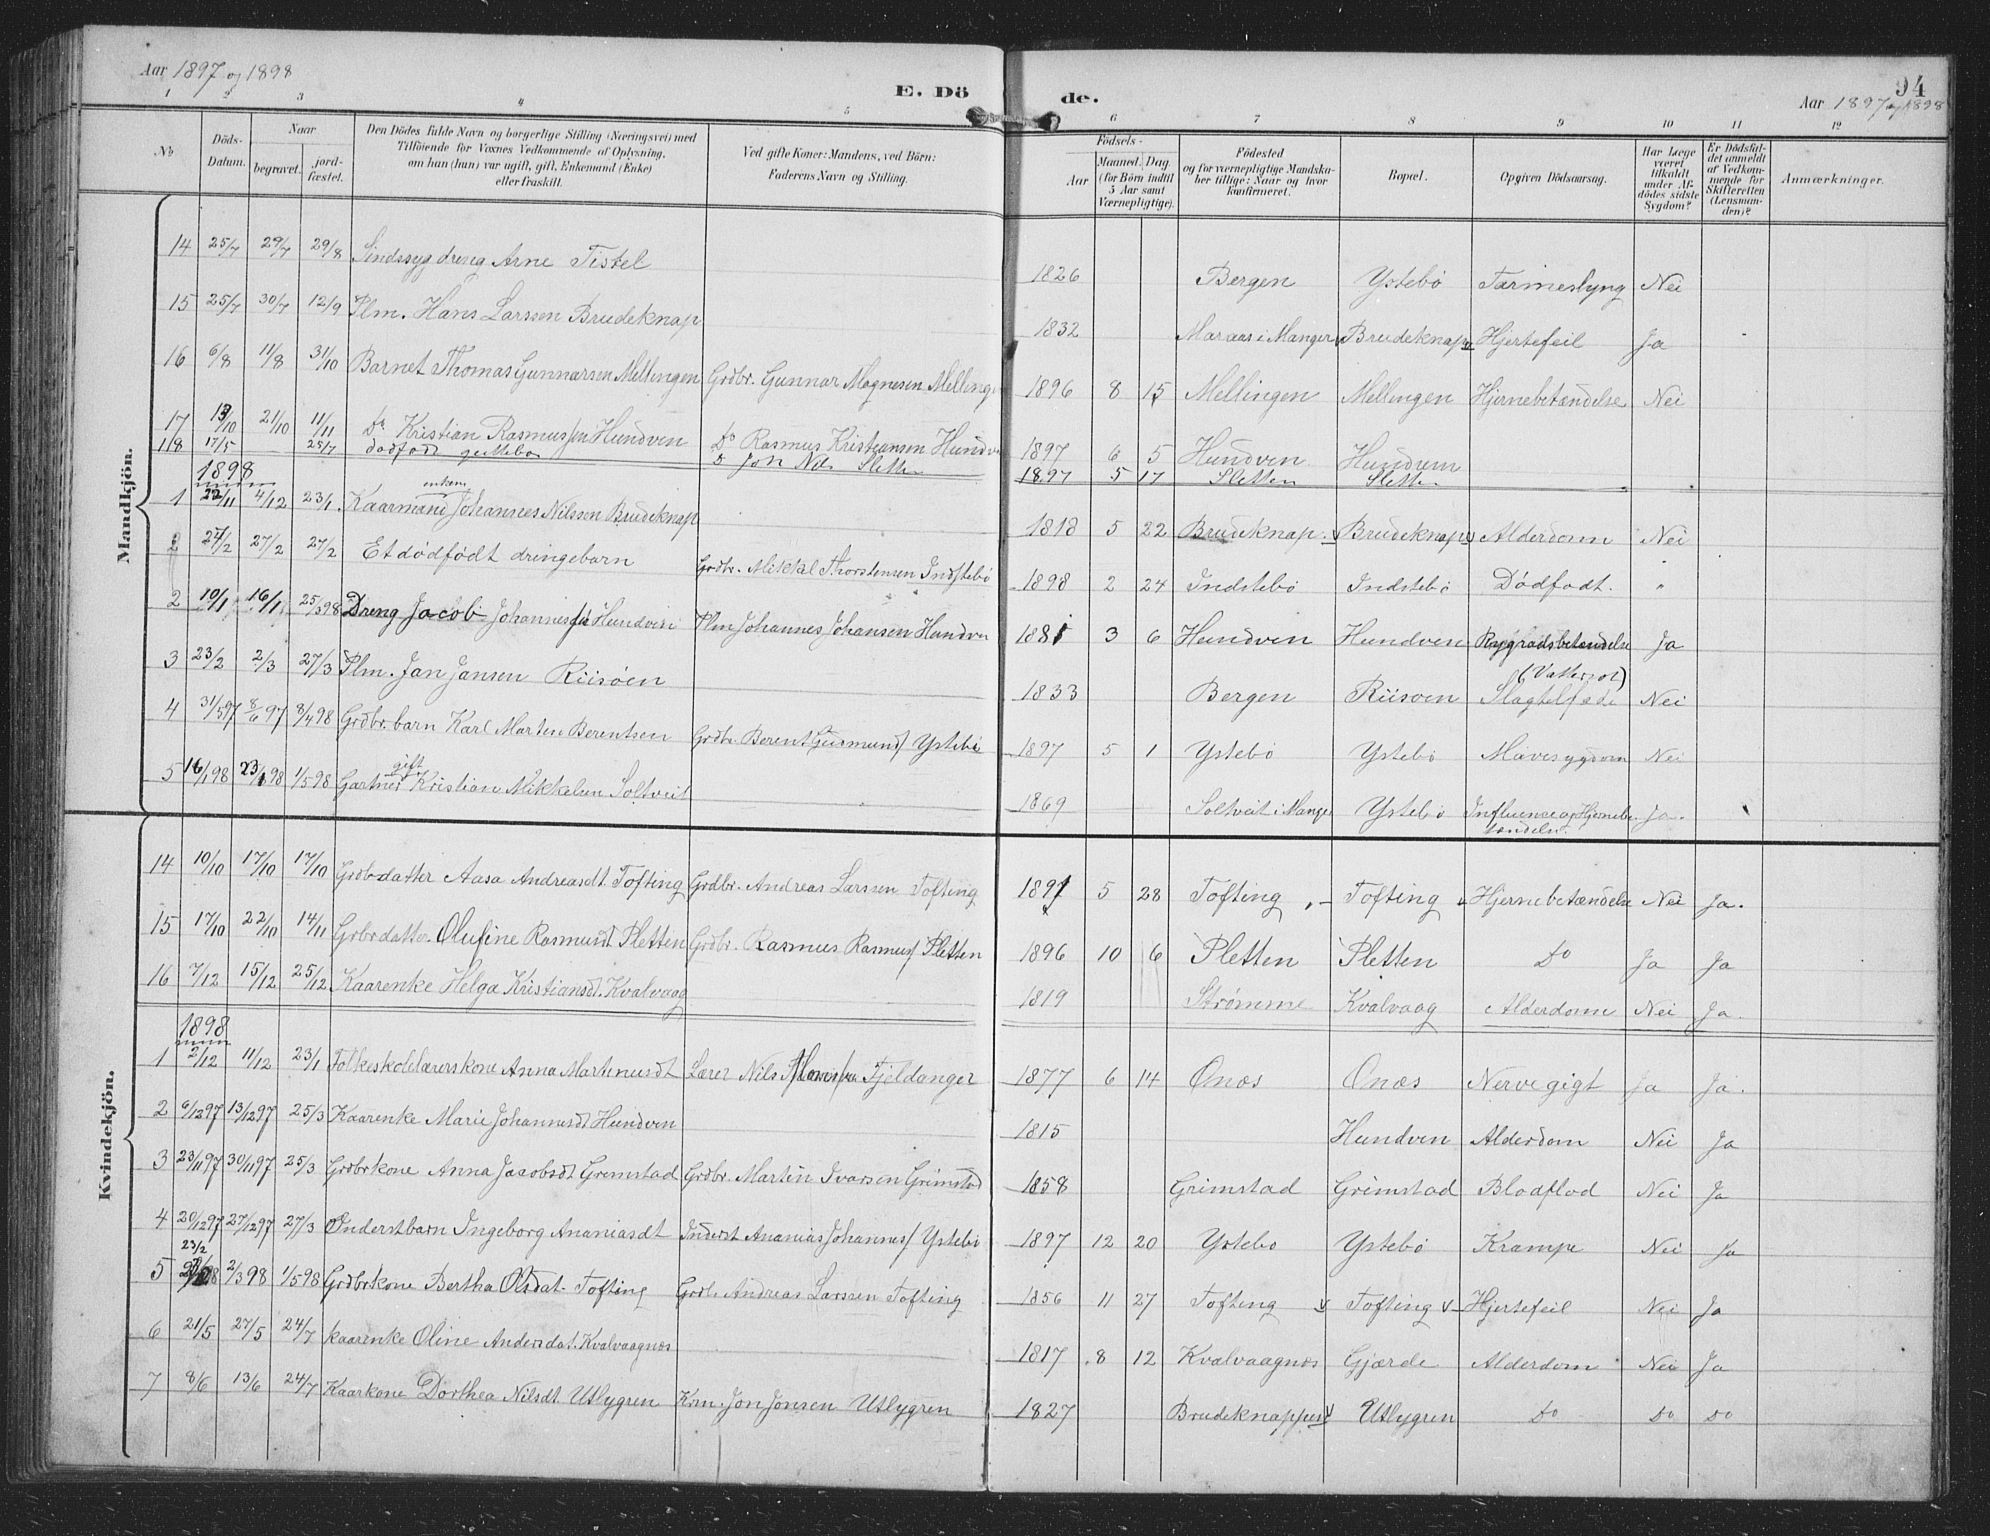 Aar 1897 og 1898
E. Dö de.
94
Aar 1897 og 1898
1 2 3 4 5 6 7 8 9 10 11 12
No
Döds-Datum.
Naar begravet. jordfæstet.
Den Dödes fulde Navn og borgerlige Stilling (Næringsvei) med Tilföiende for Voxnes Vedkommende af Oplysning, om han (hun) var ugift, gift, Enkemand (Enke) eller fraskilt.
Ved gifte Koner: Mandens, ved Börn: Faderens Navn og Stilling.
Födsels-
Aar
Maaned. Dag. (for Börn indtil 5 Aar samt Værnepligtige).
Födested og for værnepligtige Mandskaber tillige: Naar og hvor konfirmeret.
Bopæl.
Opgiven Dödsaarsag.
Har Læge været tilkaldt under Afdödes sidste Sygdom?
Er Dödsfaldet anmeldt af Vedkommende for Skifteretten (Lensmanden)?
Anmærkninger.
Mandkjön.
14 25/7 29/7 29/8 Sindssyg dreng Arne Tistel 1826 Bergen Ystebö Tarmeslyng Nei
15 25/7 30/7 12/9 Plm. Hans Larssen Brudeknap 1832 Maraas i Manger Brudeknap Hjertefeil Ja
16 6/8 11/8 31/10 Barnet Thomas Gunnarsen Mellingen Grdbr. Gunnar Magnesen Melling 1896 8 15 Mellingen Mellingen Hjernebetændelse Nei
17 13/10 21/10 11/11 Do Kristian Rasmussen Hundven Do Rasmus Kristiansen Hundv 1897 6 5 Hundven Hundven
118 17/5 25/7 dødfødt guttebarn Nils Sletten 1897 5 17 Sletten Sletten
1898
1 22/11 4/12 23/1 Kaarmand enkem Johannes Nilssen Brudeknap 1818 5 22 Brudeknap Brudeknap Alderdom Nei
2 24/2 27/2 27/2 Et dödfödt drengebarn Grdbr. Mikkal Thorstensen Indstebö 1898 2 24 Indstebö Indstebö Dödfödt. "
2 10/1 16/1 25/3 98 Dreng Jacob Johannessen Hundven Plm Johannes Johansen Hundven 1881 3 6 Hundven Hundven Rygradsbetændelse Ja
3 23/2 2/3 27/3 Plm. Jan Jansen Riisöen 1833 Bergen Riisöen (Vattersot) Nei
4 31/5 97 8/6 97 8/4 98 Grdbr.barn Karl Martin Berentsen Grdbr. Berent Ystebö 1897 5 1 Ystebö Ystebö Mavesygdom Nei
5 16/1 98 23/1 98 1/5 98 Gartner gift Kristian Mikkelsen Soltveit 1869 Soltveit i Manger Ystebö Influense og Hjernebetændelse Ja.
Kvindekjön.
14 10/10 17/10 17/10 Grdbrdatter Aasa Andreasdt. Tofting Grdbr. Andreas Larssen Tofting 1891 5 28 Tofting Tofting Hjernebetændelse Nei Ja.
15 17/10 22/10 14/11 Grbrdatter Olufine Rasmusdt Pletten Grdbr. Rasmus Rasmuss Pletten 1896 10 6 Pletten Pletten Do Ja Ja
16 7/12 15/12 25/12 Kaarenke Helga Kristiansdt. Kvalvaag 1819 Strømme Kvalvaag Alderdom Nei Ja.
1898
1 2/12 11/12 23/1 Folkeskolelærerskone Anna Martinusdt Lærer Nils Fjeldanger 1877 6 14 Onæs Onæs Nervegigt Ja Ja.
2 6/12 97 13/12 97 25/3 Kaarenke Marie Johannesdt Hundven 1815 Hundven Alderdom Nei Ja
3 23/11 97 30/11 97 25/3 Grdbrkone Anna Jacobsdt Grimstad Grdbr. Martin Ivarsen Grimstad 1858 Grimstad Grimstad Blodflod Nei Ja
4 20/12 97 27/12 97 27/3 Inderstbarn Ingeborg Ananiasdt Inderst Ananias Johanness Ystebö 1897 12 20 Ystebö Ystebö Krampe Nei Ja
5 23/2 98 2/3 98 1/5 98 Grdbrkone Bertha Olsdat. Tofting Grdb. Andreas Larssen Tofting 1856 11 27 Tofting Tofting Hjertefeil Nei Ja
6 21/5 27/5 24/7 Kaarenke Oline Andersdat. Kvalvaagnæs 1817 8 12 Kvalvaagnæs Gjærde Alderdom Nei Ja
7 8/6 13/6 24/7 Kaarkone Dorthea Nilsdt Utlygren Krm. Jon Jonsen Utlygren 1827 Brudeknappen Utlygren Do Do Do